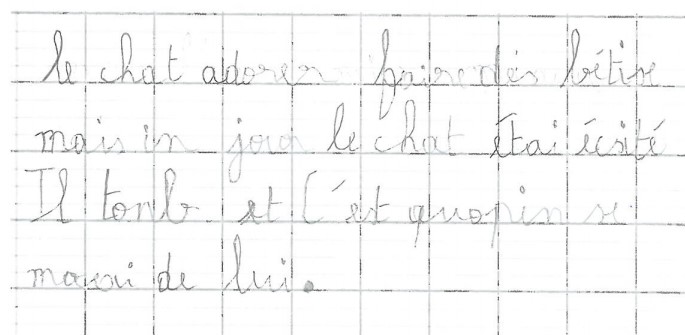 le chat adorer faire dés bétise
mais in jour le chat étai écité
Il tonb et c'est quopin se
moqui de lui.